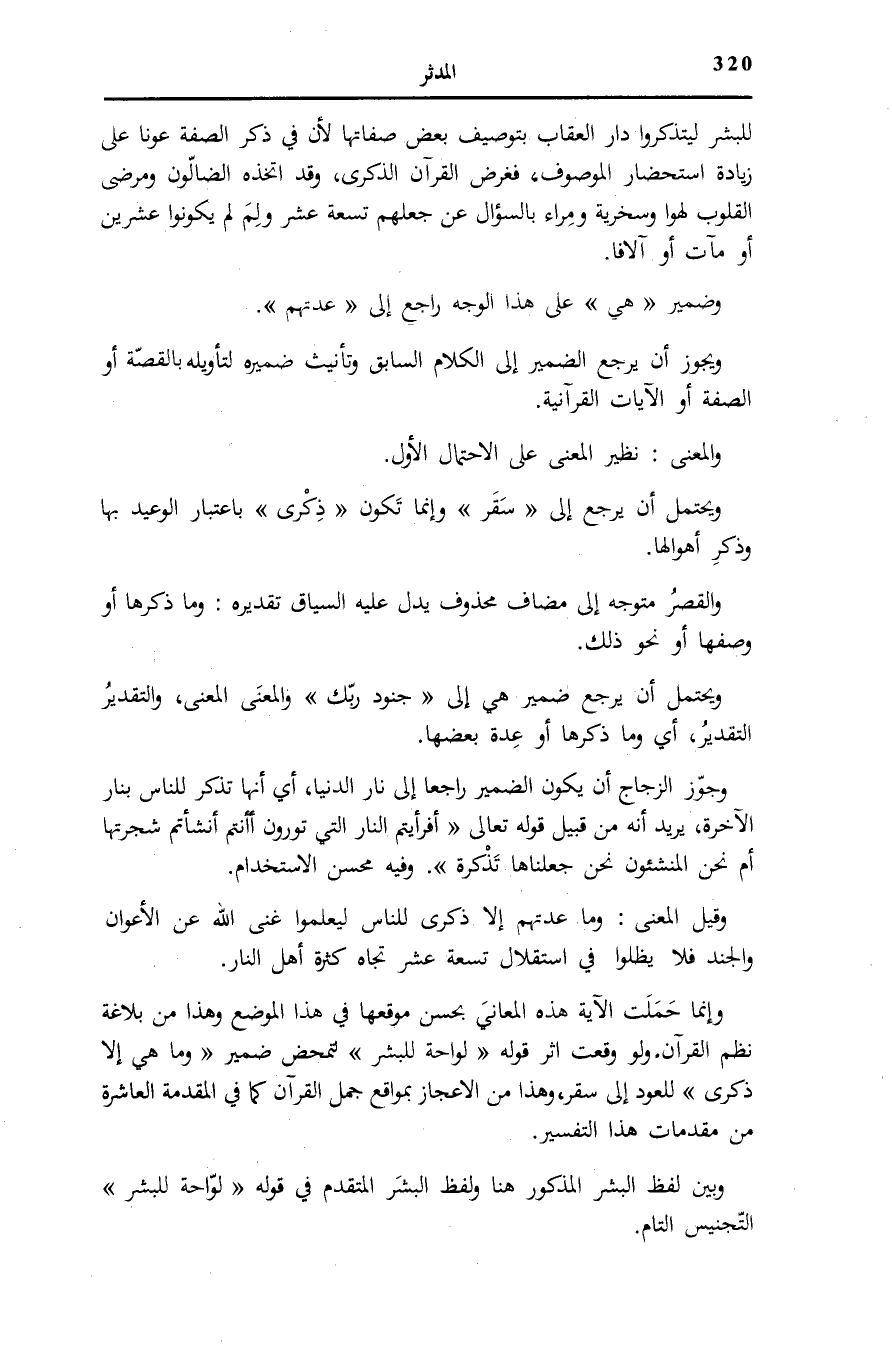 320
المدثر
للبشر ليتذكروا دار العقاب بتوصيف بعض صفاتها لأن في ذكر الصفة عونا على
زيادة استحضار الموصوف، فغرض القرآن الذكرى، وقد اتخذه الضالّون ومرضى
القلوب لهوا وسخرية ومِراء بالسؤال عن جعلهم تسعة عشر ولِمَ لم يكونوا عشرين
أو مآت أو آلافا.
وضمير « هي » على هذا الوجه راجع إلى « عدتهم ».
ويجوز أن يرجع الضمير إلى الكلام السابق وتأنيث ضميره لتأويله بالقصّة أو
الصفة أو الآيات القرآنية.
والمعنى : نظير المعنى على الاحتمال الأول.
ويحتمل أن يرجع إلى « سَقَر » وإنما تَكون « ذِكْرى » باعتبار الوعيد بها
وذكرِ أهوالها.
والقصرُ متوجه إلى مضاف محذوف يدل عليه السياق تقديره : وما ذكرها أو
وصفها أو نحو ذلك.
ويحتمل أن يرجع ضمير هي إلى « جنود ربّك » والمعنَى المعنى، والتقديرُ
التقديرُ، أي وما ذكرها أو عِدة بعضها.
وجوّز الزجاج أن يكون الضمير راجعا إلى نار الدنيا، أي أنها تذكر للناس بنار
الآخرة، يريد أنه من قبيل قوله تعالى « أفرأيتم النار التي تورون أأنتم أنشأتم شجرتها
أم نحن المنشئون نحن جعلناها تَذْكرة ». وفيه محسن الاستخدام.
وقيل المعنى : وما عدتهم إلا ذكرى للناس ليعلموا غنى الله عن الأعوان
والجند فلا يظلوا في استقلال تسعة عشر تجاه كثرة أهل النار.
وإنما حَمَلَت الآية هذه المعانيَ بحسن موقعها في هذا الموضع وهذا من بلاغة
نظم القرآن. ولو وقعت اثر قوله « لواحة للبشر » لتمحض ضمير « وما هي إلا
ذكرى » للعود إلى سقر، وهذا من الاعجاز بمواقع جمل القرآن كما في المقدمة العاشرة
من مقدمات هذا التفسير.
وبين لفظ البشر المذكور هنا ولفظ البشَر المتقدم في قوله « لوّاحة للبشر »
التّجنيس التام.